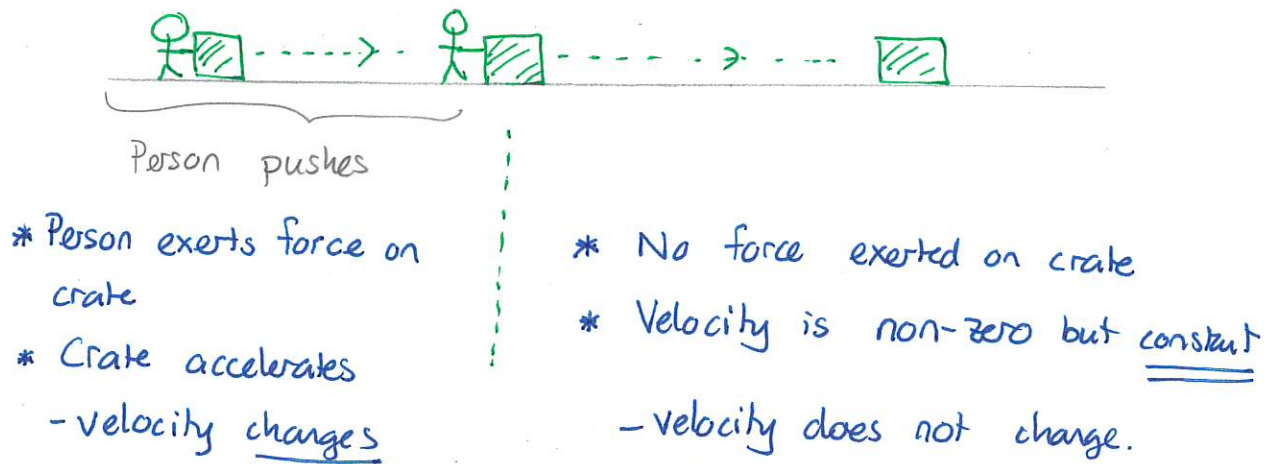 Person pushes
* Person exerts force on
crate
* Crate accelerates
- velocity changes
* No force exerted on crate
* Velocity is non-zero but constant
- velocity does not change.